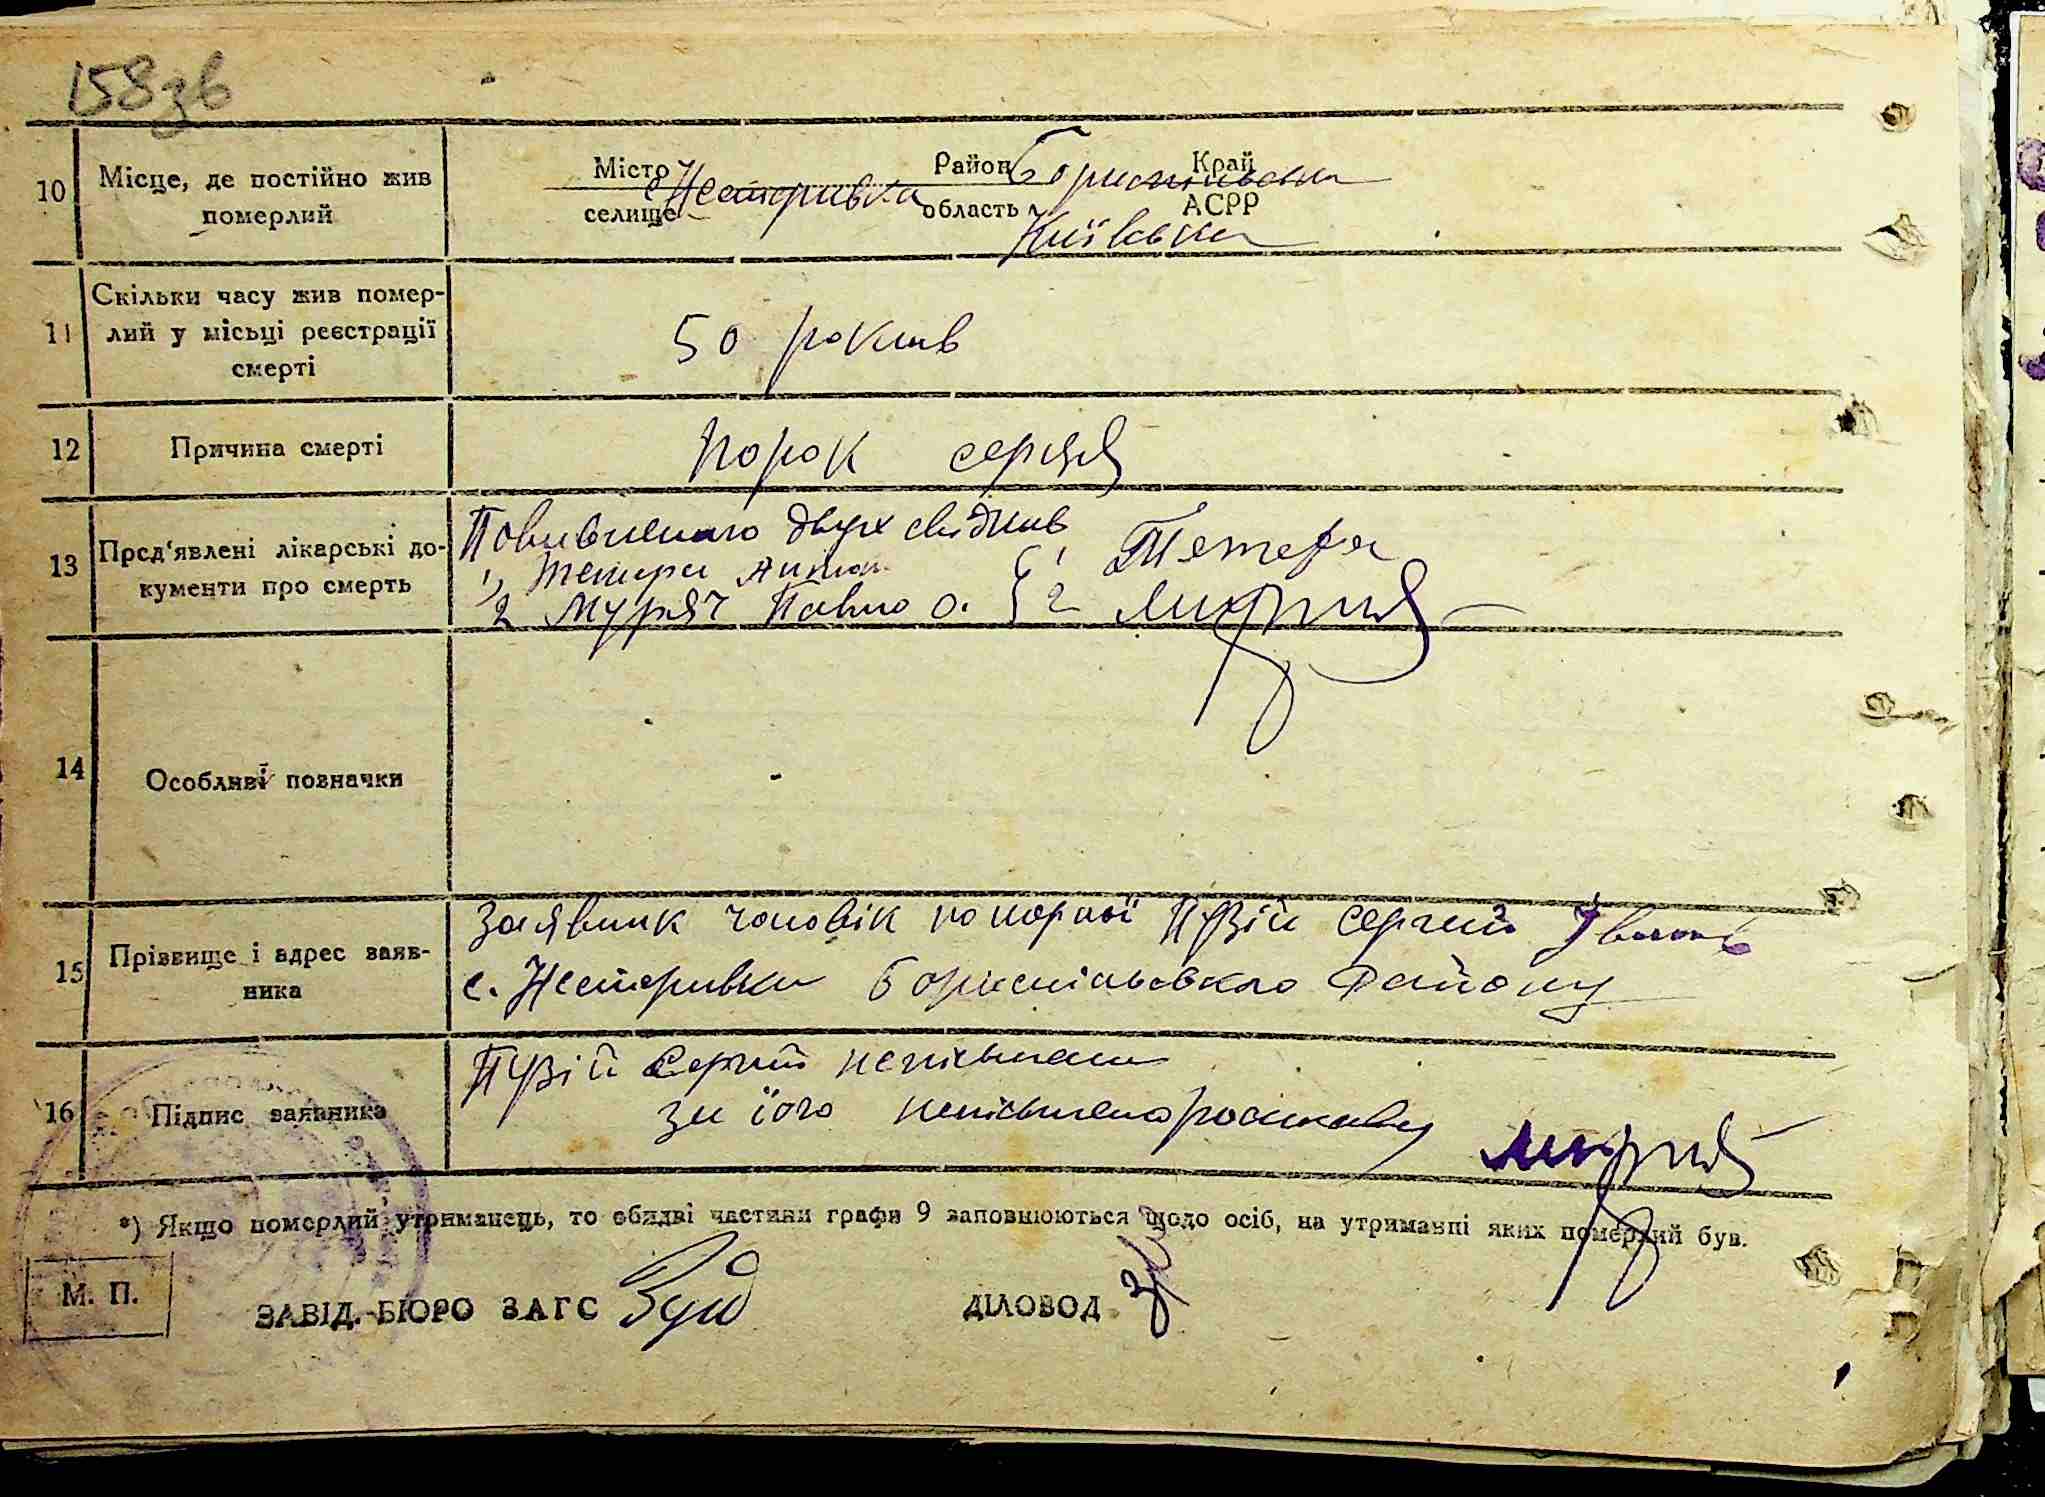 158зв
10 Місце, де постійно жив померлий
Місто селище с. Нестеривка Район Бориспільськи область Київська Край АСРР
11 Скільки часу жив померлий у місьці реєстрації смерті
50 рокив
12 Причина смерті
Порок серця
13 Пред'явлені лікарські документи про смерть
двух свідкив
1, Тетери Антон 1 Тетера
2 Муряч Павло О. 2
14 Особливі позначки
15 Прізвище і адрес заявника
Заявник чоловік покорної Пузій Сергий Іванов
с. Нестеривка Бориспільського району
16 Підпис заявника
Пузій Сергий неписьмени
за його неписьмено росписався
*) Якщо померлий утриманець, то обидві частини графи 9 заповнюються щодо осіб, на утриманні яких померлий був.
М. П.
ЗАВІД. БЮРО ЗАГС ДІЛОВОД